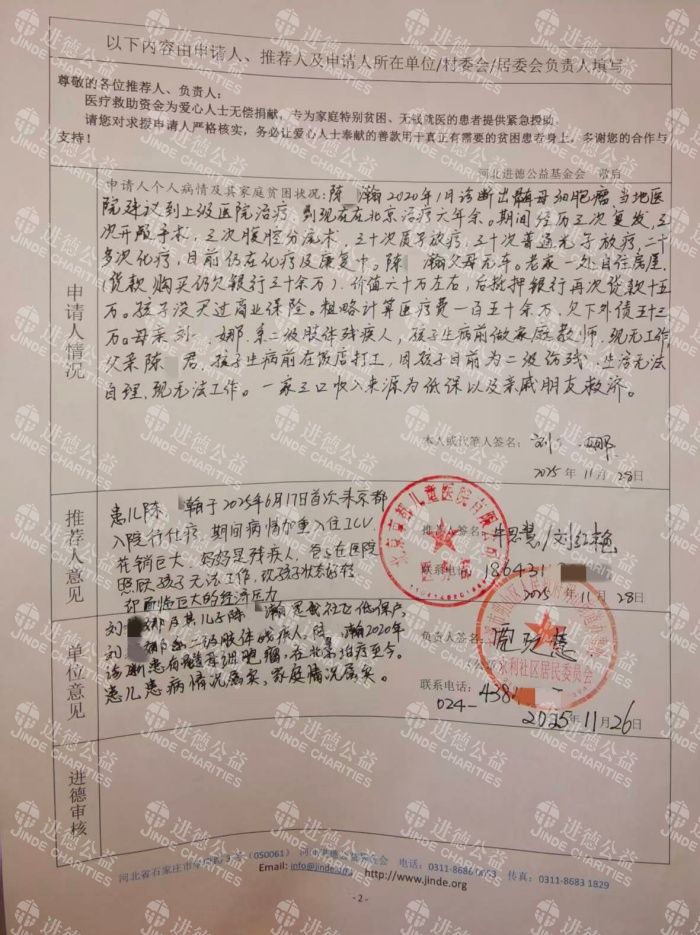 以下内容由申请人、推荐人及申请人所在单位/村委会/居委会负责人填写
尊敬的各位推荐人、负责人:
医疗救助资金为爱心人士无偿捐献,专为家庭特别贫困、无钱就医的患者提供紧急援助。
请您对求援申请人严格核实,务必让爱心人士奉献的善款用于真正有需要的贫困患者身上,多谢您的合作与
支持!
河北进德公益基金会 常启
申请人情况
申请人个人病情及其家庭贫困状况:陈 瀚2020年1月诊断出髓母细胞瘤,当地医
院建议到上级医院治疗,到现在在北京治疗六年余。期间经历三次复发,三
次开颅手术,三次腹腔分流术,三十次质子放疗,三十次普通光子放疗,二十
多次化疗,目前仍在化疗及康复中。陈 瀚父母无车。老家一处自住房屋
(贷款购买仍欠银行三十余万),价值六十万左右,后抵押银行再次贷款十五
万。孩子没买过商业保险。粗略计算医疗费一百五十余万,欠下外债五十三
万。母亲刘 娜,系二级肢体残疾人,孩子生病前做家庭教师,现无工作
父亲陈 君,孩子生病前在饭店打工,因孩子目前为二级伤残,生活无法
自理,现无法工作。一家三口收入来源为低保以及亲戚朋友救济。
本人或代笔人签名: 刘 娜
2025年11月28日
推荐人意见
患儿陈 翰于2025年6月17日首次来京都
入院行化疗,期间病情加重入住ICU,
花销巨大,妈妈是残疾人,爸爸在医院
照顾孩子无法工作,现孩子状态好转
却面临巨大的经济压力
推荐人签名: 牛思慧/刘红艳
联系电话: 186431
2025年11月28日
北京京都儿童医院有限公司
单位意见
刘 娜及其儿子陈 瀚是我社区低保户,
刘 娜系二级肢体残疾人,陈 瀚2020年
诊断患有髓母细胞瘤,在北京治疗至今。
患儿患病情况属实,家庭情况属实。
负责人签名:
联系电话: 4381
024-
2025年11月26日
永利社区居民委员会
进德审核
河北省石家庄市 (050061) 河北进德公益基金会 电话:0311-8686 传真:0311-8683 1829
Email: info@jinde.org http://www.jinde.org
- 2 -
进德公益
JINDE CHARITIES